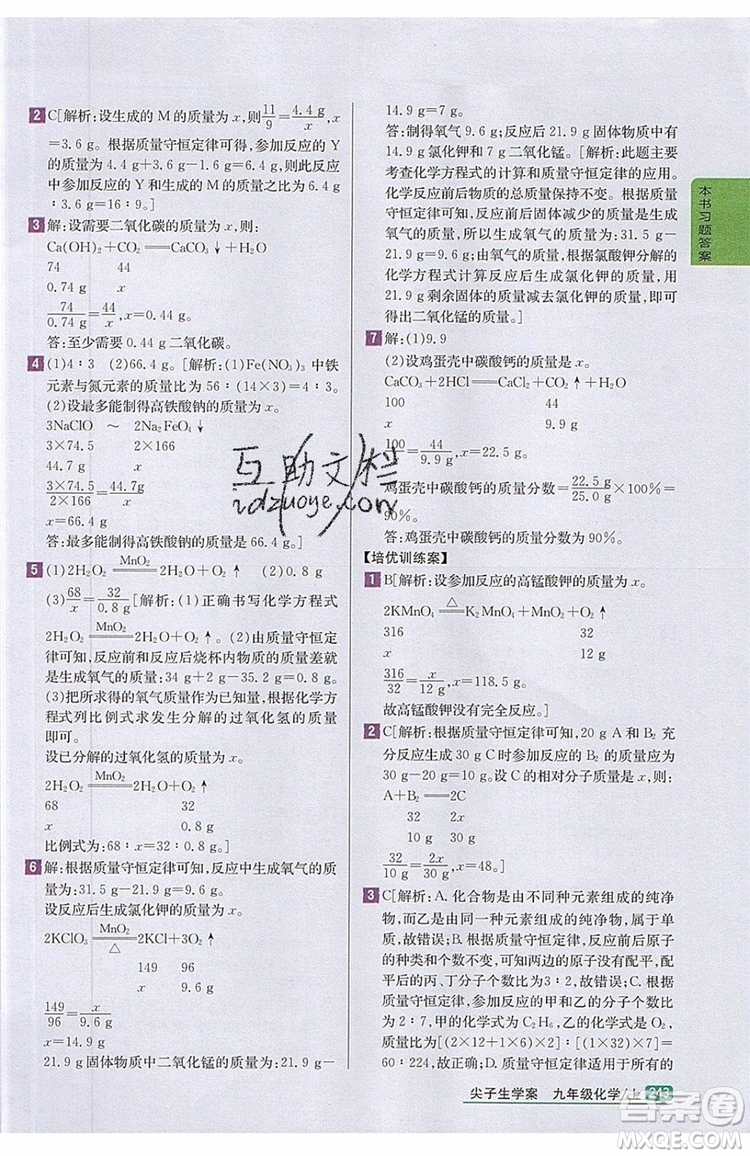 2 C[解析:设生成的 M 的质量为 x,则11/9=4.4 g/x,x
=3.6 g。根据质量守恒定律可得,参加反应的 Y
的质量为 4.4 g+3.6 g-1.6 g=6.4 g。则此反应
中参加反应的 Y 和生成的 M 的质量之比为 6.4 g
∶3.6 g=16∶9。]
3 解:设需要二氧化碳的质量为 x,则:
Ca(OH)₂+CO₂═══CaCO₃↓+H₂O
74 44
0.74 g x
74/0.74 g=44/x,x=0.44 g。
答:至少需要 0.44 g 二氧化碳。
4 (1)4∶3 (2)66.4 g。[解析:(1)Fe(NO₃)₃ 中铁
元素与氮元素的质量比为 56∶(14×3)=4∶3。
(2)设最多能制得高铁酸钠的质量为 x。
3NaClO ~ 2Na₂FeO₄
3×74.5 2×166
44.7 g x
3×74.5/2×166=44.7g/x
x=66.4 g
答:最多能制得高铁酸钠的质量为 66.4 g。]
5 (1)2H₂O₂ MnO₂═══ 2H₂O+O₂↑ (2)0.8 g
(3)68/x=32/0.8 g[解析:(1)正确书写化学方程式
2H₂O₂ MnO₂═══ 2H₂O+O₂↑。(2)由质量守恒定
律可知,反应前后烧杯内物质的质量差就
是生成氧气的质量,则反应生成氧气的质量
为:34 g+2 g-35.2 g=0.8 g。
(3)把所求得的氧气质量作为已知量,根据化学方
程式列比例式求发生分解的过氧化氢的质量
即可。
设已分解的过氧化氢的质量为 x。
2H₂O₂ MnO₂═══ 2H₂O+O₂↑
68 32
x 0.8 g
比例式为:68∶x=32∶0.8 g]
6 解:根据质量守恒定律可知,反应中生成氧气的质
量为:31.5 g-21.9 g=9.6 g。
设反应后生成氯化钾的质量为 x。
2KClO₃ MnO₂═══△ 2KCl+3O₂↑
149 96
x 9.6 g
149/96=x/9.6 g
x=14.9 g
21.9 g 固体物质中二氧化锰的质量为:21.9 g-
14.9 g=7 g
答:制得氧气 9.6 g;反应后 21.9 g 固体物质中有
14.9 g 氯化钾和 7 g 二氧化锰。[解析:此题主要
考查化学方程式的计算和质量守恒定律的应用。
化学反应前后物质的总质量保持不变。根据质
量守恒定律可知,反应后固体减少的质量是生成
氧气的质量,所以生成氧气的质量为:31.5 g-
21.9 g=9.6 g。根据氧气的质量,根据氯酸钾分解的
化学方程式计算反应后生成氯化钾的质量,用
21.9 g 剩余固体的质量减去氯化钾的质量,即可
得出二氧化锰的质量。]
7 解:(1)9.9
(2)设鸡蛋壳中碳酸钙的质量为 x。
CaCO₃+2HCl═══CaCl₂+H₂O+CO₂↑
100 44
x 9.9 g
100/x=44/9.9 g,x=22.5 g。
鸡蛋壳中碳酸钙的质量分数=22.5 g/25.0 g×100%=
90%。
答:鸡蛋壳中碳酸钙的质量分数为 90%。
【培优训练案】
1 B[解析:设参加反应的高锰酸钾的质量为 x。
2KMnO₄ △═══ K₂MnO₄+MnO₂+O₂↑
316 32
x 12 g
316/x=32/12 g,x=118.5 g。
故高锰酸钾没有完全反应。]
2 C[解析:根据质量守恒定律可知,20 g A 和 B₂ 充
分反应生成 30 g C 时参加反应的 B₂ 的质量为
30 g-20 g=10 g。设 C 的相对分子质量为 x。
A+B₂═══2C
32 2x
10 g 30 g
32/10 g=2x/30 g,x=48。]
3 C[解析:A. 化合物是由不同种元素组成的纯净
物,而乙是由一种元素组成的纯净物,属于单
质,故错误;B. 根据质量守恒定律,反应前后原子
的种类和个数不变,可知两边的原子个数不等,配
平后的丙、丁分子个数比为3∶2,故错误;C. 根据
质量守恒定律,参加反应的甲和乙的分子个数比
为 2∶7,甲的化学式为 C₂H₆,乙的化学式为 O₂,
则质量比为[2×(12×2+1×6)]∶[7×(16×2)]=
60∶224,故正确;D. 质量守恒定律适用于所有的
本书习题答案
尖子生学案 九年级化学/上 243
互助文档
zuoye.com
答案圈
MXQE.COM